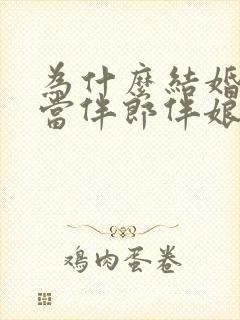 為什麼結婚
當伴郎伴娘
鸡肉蛋卷